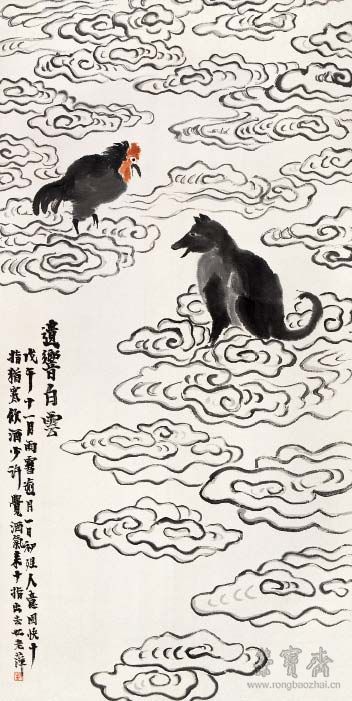 遗響白雲
戊午十一月雨雪逾月一日初
指稍寒飲酒少許覺酒氣来十指出去如老萍
榮寶齋
www.rongbaozhai.cn